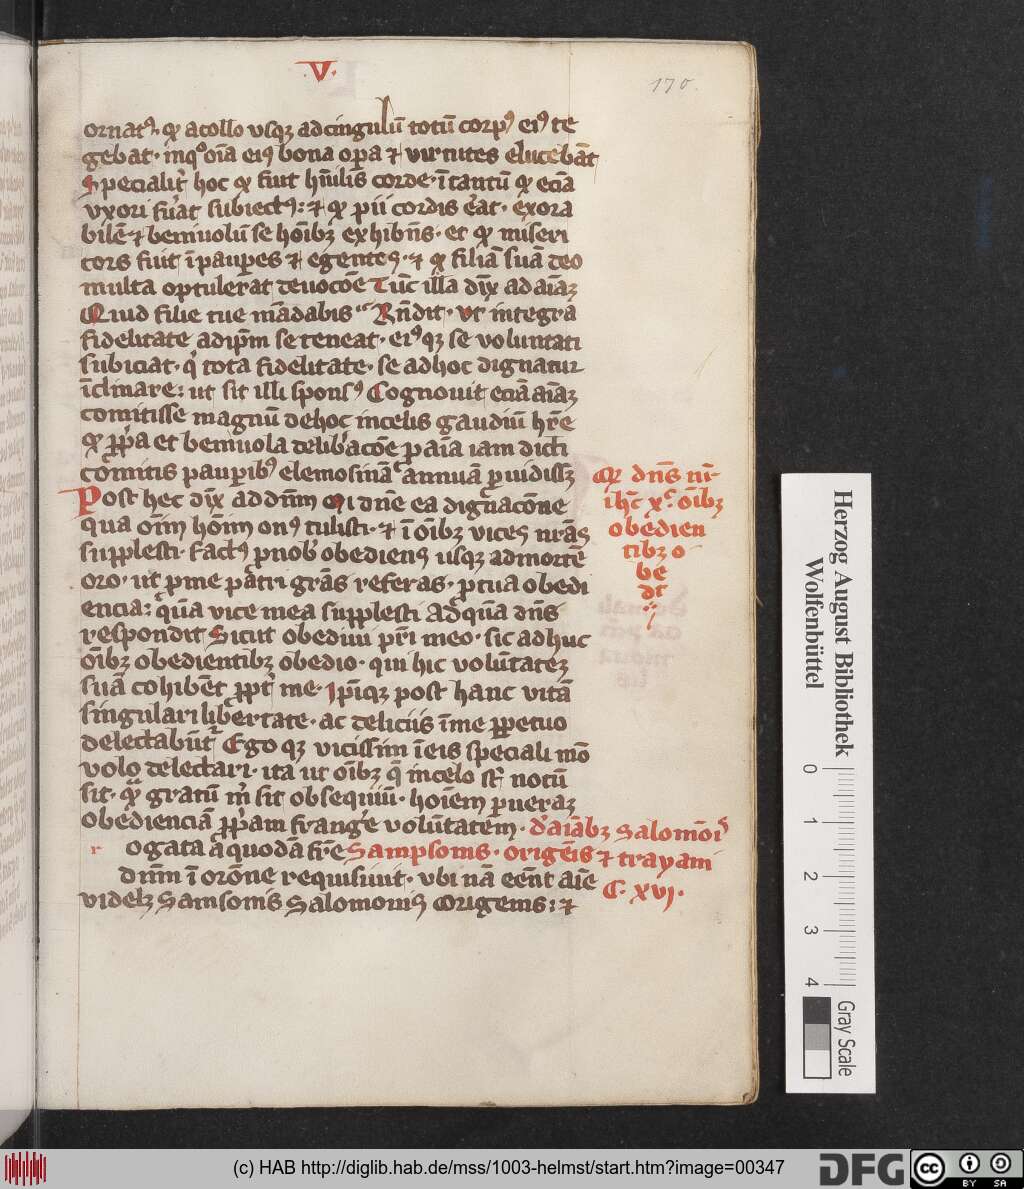 .V.
170.
ornat9 qͥ a collo vsqꝫ ad cingulū totū corp9 ei9 te
gebat · inqͦ oīa ei9 bona opa ⁊ virtutes elucebāt
Specialit᷑ hoc ꝙ fuit hūilis corde · ī tantū ꝙ eciā
vxori fu᷑at subiect9 : ⁊ ꝙ pii cordis e᷑at · exora
bilē ⁊ beniuolū se hoībꝫ exhibn̄s · et ꝙ miseri
cors fuit ī paupes ⁊ egentes · ⁊ ꝙ filiā suā deo
multa optulerat deuocōe Tūc illa dix̄ ad aīaꝫ
Quid filie tue mādabis Rn̄dit · vt integra
fidelitate adip̄m se teneat · ei9qꝫ se voluntati
subiciat · qͥ tota fidelitate · se ad hoc dignatur
īclinare : ut sit illi spons9 Cognouit eciā aīaꝫ
comitisse magnū de hoc in celis gaudiū hr̄e
ꝙ ꝓp̄a et beniuola delib᷑acōe p aīa iam dicti
comitis paupib9 elemosinā annuā ꝓuidissꝫ
Post hec dix̄ ad dn̄m Mi dn̄e ea dignacōne
qua oīm hoīm on9 tulisti · ⁊ ī oībꝫ vices nr̄as
supplesti · fact9 ꝓ nob᷑ obediens usqꝫ ad mortē
oro · ut ꝓ me pat̄ri gr̄as referas · ꝑ tua obedi
encia : qͣua vice mea supplesti Ad qua dn̄s
respondit Sicut obediui pr̄i meo · sic adhuc
oībꝫ obedientibꝫ obedio · qui hic volūtateꝫ
suā cohibēt ꝓpt᷑ me · Ip̄iqꝫ post hanc vitā
singulari libertate · ac deliciis ī me ꝑpetuo
delectabūt᷑ Ego qꝫ vicissim ī eis speciali mō
volo delectari · ita ut oībꝫ qͥ in celo st̄ notū
sit · qͣ gratū m̄ sit obsequiū · hoīem ꝑ ueraꝫ
obedienciā ꝓp̄am frang᷑e volūtatem · d᷑ aīabꝫ Salomōi᷑
r ogata a quodā fr̄e Sampsonis · origēis ⁊ trayani
dn̄m ī orōne requisiuit · vbi nā eēnt aīe C. xvi ·
videlꝫ Samsonis Salomonis Origenis : ⁊
Qͥ dn̄s nr̄
ihc̄ xc̄ oībꝫ
obedien
tibꝫ o
be
dt
Herzog August Bibliothek
Wolfenbüttel
0
1
2
3
4
Gray Scale
(c) HAB http://diglib.hab.de/mss/1003-helmst/start.htm?image=00347
DFG
cc
BY SA